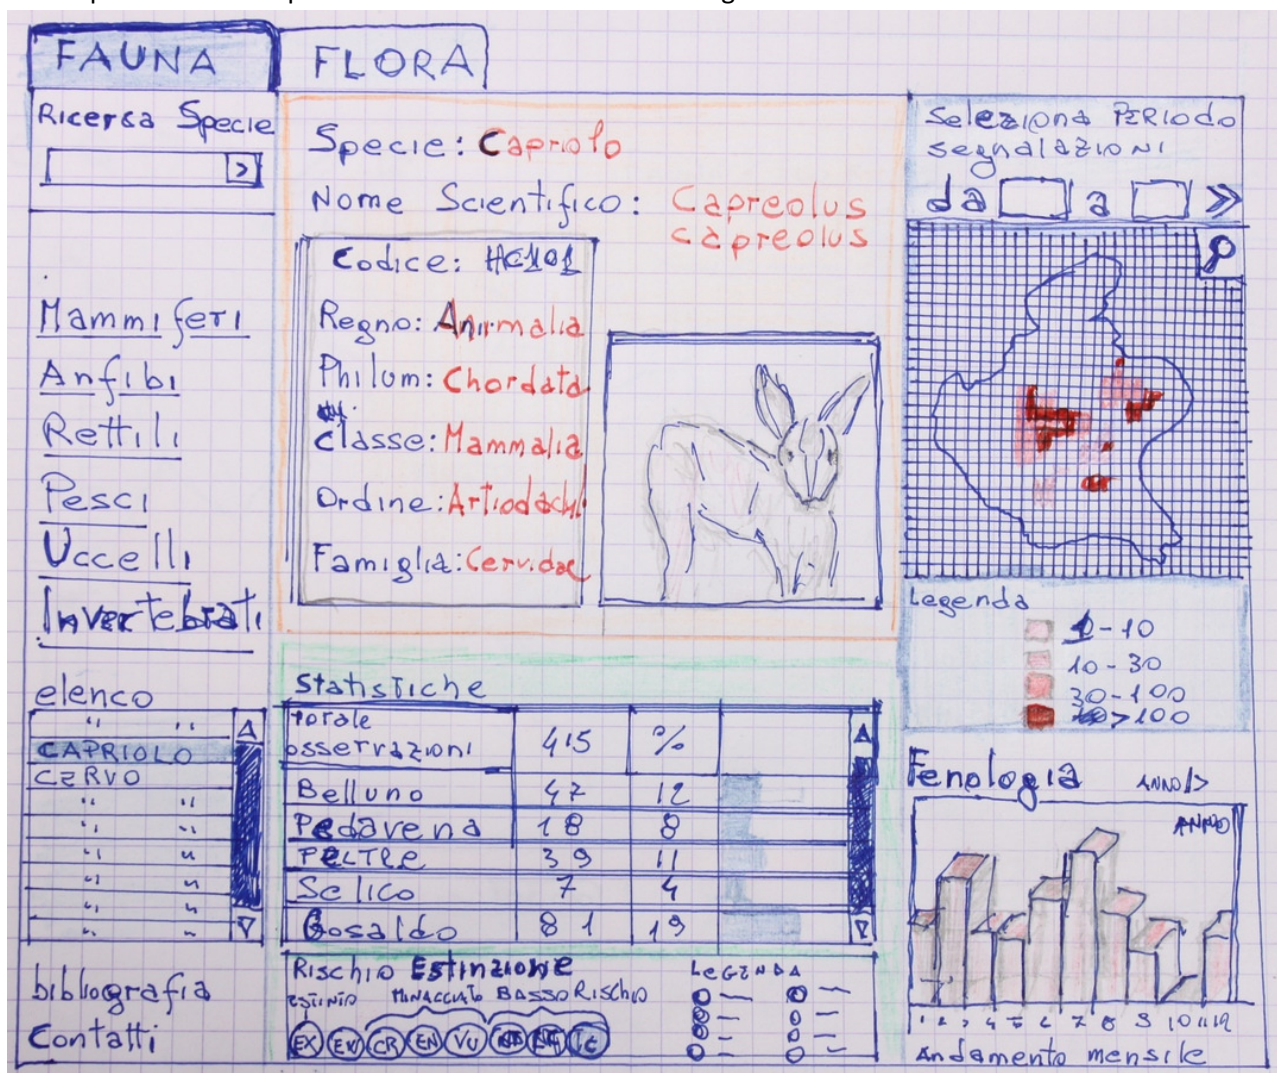 FAUNA
FLORA
Ricerca Specie
>
Mammiferi
Anfibi
Rettili
Pesci
Uccelli
Invertebrati
elenco
" "
CAPRIOLO
CERVO
" "
" "
" "
" "
" "
" "
bibliografia
Contatti
Specie: Capriolo
Nome Scientifico: Capreolus
capreolus
Codice: HC101
Regno: Animalia
Philum: Chordata
classe: Mammalia
Ordine: Artiodactyl
Famiglia: Cervidae
Statistiche
totale
osservazioni 415 %
Belluno 47 12
Pedavena 18 8
FELTRE 39 11
Selico 7 4
Gosaldo 81 19
Rischio Estinzione
ESTINTO MINACCIATO BASSO RISCHIO
EX EW CR EN VU
LC
LEGENDA
Seleziona PERIODO
segnalazioni
da a »
Legenda
1-10
10-30
30-100
>100
Fenologia ANNO/>
ANNO
1 2 3 4 5 6 7 8 9 10 11 12
Andamento mensile